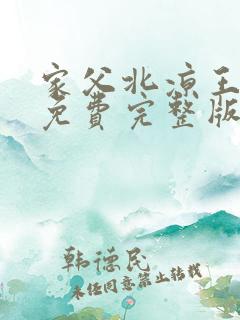 家父北凉王
免费完整版
韩德民
未经同意禁止转载